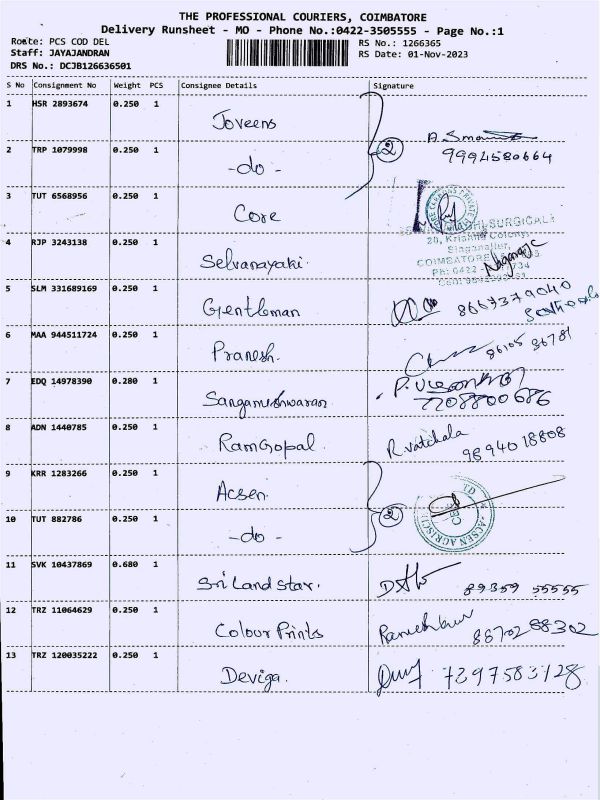 THE PROFESSIONAL COURIERS, COIMBATORE
Delivery Runsheet - MO - Phone No.:0422-3505555 - Page No.:1
Route: PCS COD DEL RS No.: 1266365
Staff: JAYAJANDRAN RS Date: 01-Nov-2023
DRS No.: DCJB126636501
S No Consignment No Weight PCS Consignee Details Signature
1 HSR 2893674 0.250 1 Joveens
2 TRP 1079998 0.250 1 -do- 2 9994580664
3 TUT 6568956 0.250 1 Core
SURGICALS
20, Krishna Colony,
Singanallur,
4 RJP 3243138 0.250 1 Selvanayaki. COIMBATORE
5 SLM 331689169 0.250 1 Gentleman 8667379040
6 MAA 944511724 0.250 1 Pranesh. 86105 36781
7 EDQ 14978390 0.280 1 Sangameshwaran 7708800686
8 ADN 1440785 0.250 1 RamGopal. R. Vatchala 9894018808
9 KRR 1283266 0.250 1 Acsen.
10 TUT 882786 0.250 1 -do- 2 ACSEN AGRISCI
11 SVK 10437869 0.680 1 Sri Land Star. 89359 55555
12 TRZ 11064629 0.250 1 Colour Prints 8870288302
13 TRZ 120035222 0.250 1 Deviga. 7397583128